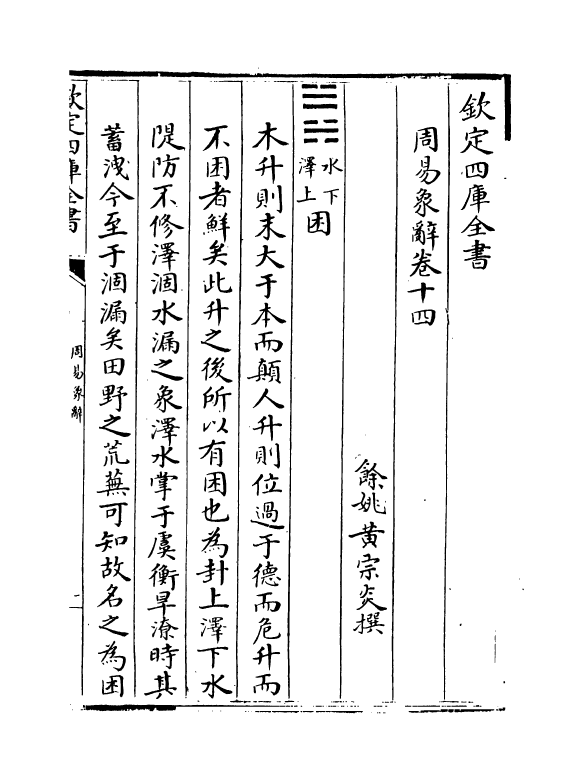 欽定四庫全書
周易象辭卷十四
餘姚黄宗炎撰
水下
澤上
困
木升則末大于本而顛人升則位過于德而危升而
不困者鮮矣此升之後所以有困也為卦上澤下水
隄防不修澤涸水漏之象澤水掌于虞衡旱潦時其
蓄洩今至于涸漏矣田野之荒蕪可知故名之為困
欽定四庫全書
周易象辭